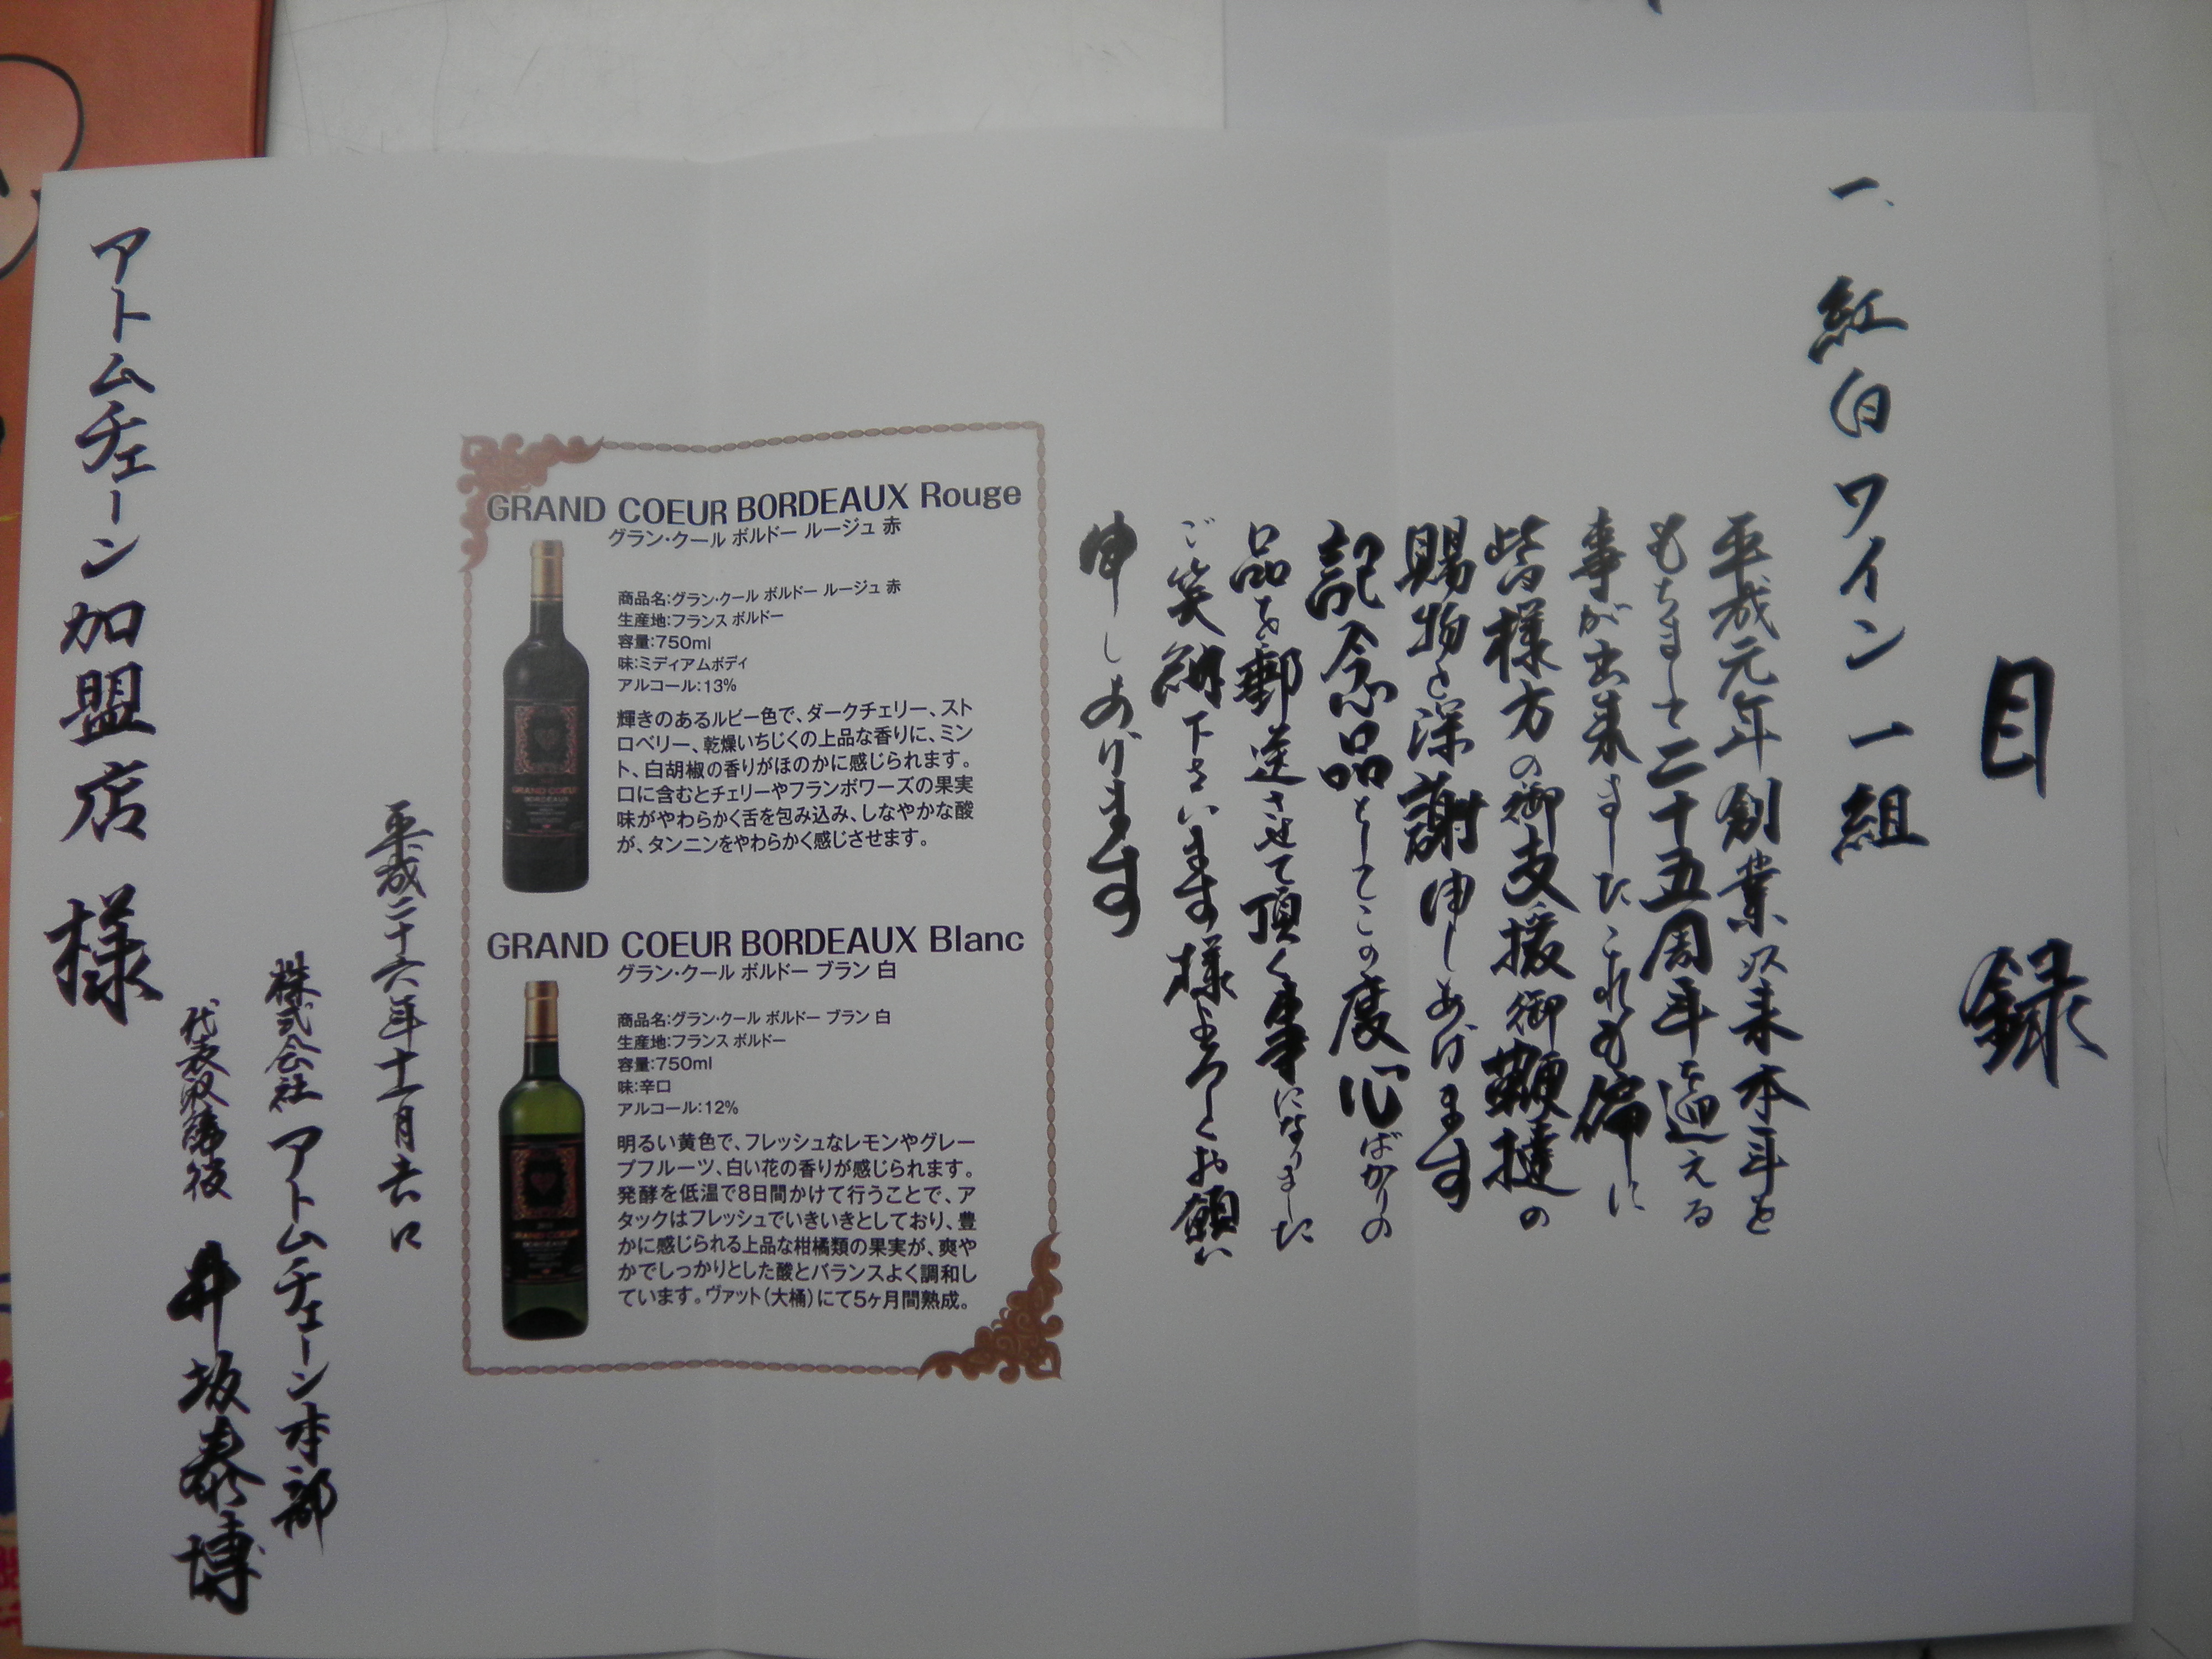 目録
一、紅白ワイン一組
平成元年創業以来本年を
もちまして二十五周年を迎える
事が出来ましたこれも偏に
皆様方の御支援御鞭撻の
賜物と深謝申しあげます
記念品としてこの度心ばかりの
品を郵送させて頂く事になりました
ご笑納下さいます様よろしくお願い
申しあげます
GRAND COEUR BORDEAUX Rouge
グラン・クール ボルドー ルージュ 赤
商品名:グラン・クール ボルドー ルージュ 赤
生産地:フランス ボルドー
容量:750ml
味:ミディアムボディ
アルコール:13%
輝きのあるルビー色で、ダークチェリー、スト
ロベリー、乾燥いちじくの上品な香りに、ミン
ト、白胡椒の香りがほのかに感じられます。
口に含むとチェリーやフランボワーズの果実
味がやわらかく舌を包み込み、しなやかな酸
が、タンニンをやわらかく感じさせます。
GRAND COEUR
BORDEAUX
GRAND COEUR BORDEAUX Blanc
グラン・クール ボルドー ブラン 白
商品名:グラン・クール ボルドー ブラン 白
生産地:フランス ボルドー
容量:750ml
味:辛口
アルコール:12%
明るい黄色で、フレッシュなレモンやグレー
プフルーツ、白い花の香りが感じられます。
発酵を低温で8日間かけて行うことで、ア
タックはフレッシュでいきいきとしており、豊
かに感じられる上品な柑橘類の果実が、爽や
かでしっかりとした酸とバランスよく調和し
ています。ヴァット(大桶)にて5ヶ月間熟成。
GRAND COEUR
BORDEAUX
平成二十六年十一月吉日
株式会社 アトムチェーン本部
代表取締役 井坂泰博
アトムチェーン加盟店 様